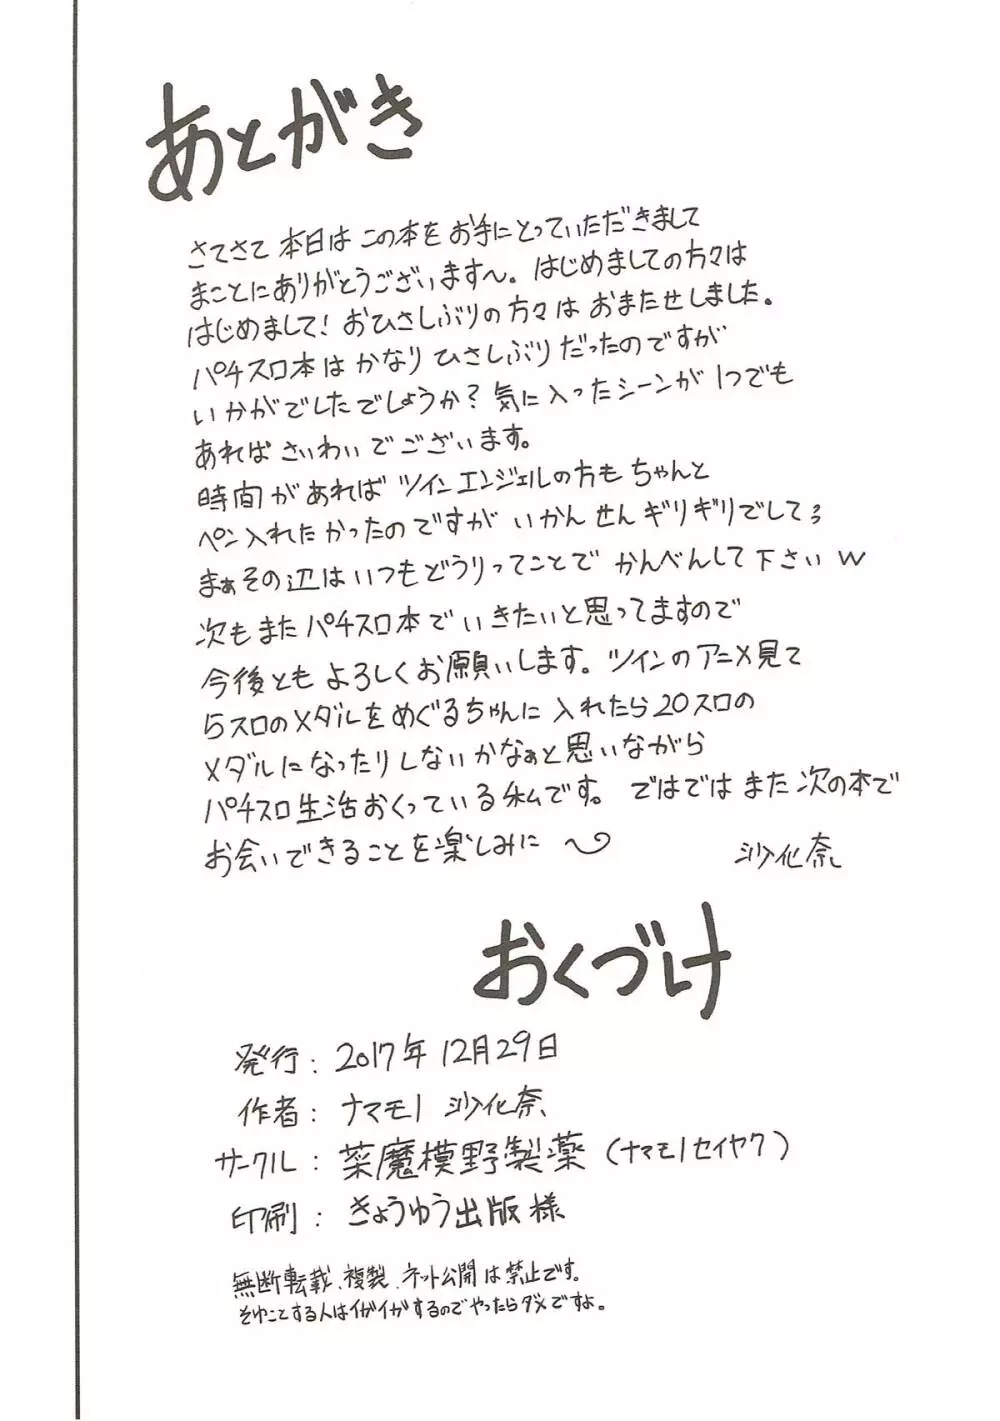 あとがき
さてさて 本日は この本を お手にとっていただきまして
まことにありがとうございます〜。はじめましての方々は
はじめまして! おひさしぶりの方々は おまたせしました。
パチスロ本は かなり ひさしぶりだったのですが
いかがでしたでしょうか? 気に入ったシーンが 1つでも
あれば さいわいでございます。
時間があれば ツインエンジェルの方も ちゃんと
ペン入れたかったのですが いかんせんギリギリでして
まぁその辺はいつもどうりってことで かんべんして下さいw
次もまたパチスロ本でいきたいと思ってますので
今後とも よろしくお願いします。ツインのアニメ見て
5スロのメダルをめぐるちゃんに 入れたら20スロの
メダルになったりしないかなぁと思いながら
パチスロ生活おくっている私です。ではではまた次の本で
お会いできることを楽しみに〜 沙化奈
おくづけ
発行:2017年12月29日
作者:ナマモノ 沙化奈
サークル:菜魔模野製薬(ナマモノセイヤク)
印刷:きょうゆう出版様
無断転載、複製、ネット公開は禁止です。
そゆことする人はイガイガするのでやったらダメですよ。